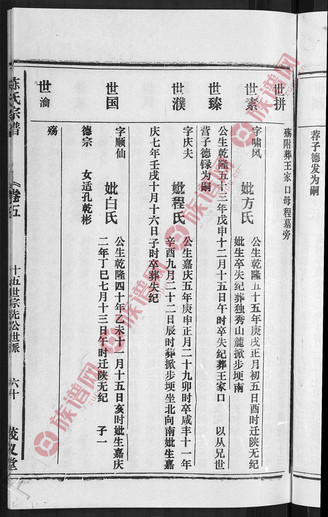 荐子德发为嗣
世拼
殇附葬王家口母程墓旁
世素
字啸风
妣方氏
公生乾隆五十五年庚戌正月初五日酉时迁陕无纪
妣生卒失纪葬独秀山麓掀步埂南
世臻
公生乾隆五十三年戊申十二月十五日午时卒失纪葬王家口
以从兄世
营子德禄为嗣
世濮
字庆夫
妣程氏
公生嘉庆五年庚申正月二十九卯时卒咸丰十一年
辛酉九月二十二日辰时葬掀步埂坐北向南妣生嘉
庆七年壬戌十月十六日子时卒葬失纪
世国
字顺仙
妣白氏
公生乾隆四十年乙未十一月十五日亥时妣生嘉庆
二年丁巳七月十三日午时迁陕无纪
子一
德宗
女适孔乾彬
世渝
殇
陈氏宗谱
卷五
十五世宗先公世派
六十
茂义堂
族谱网